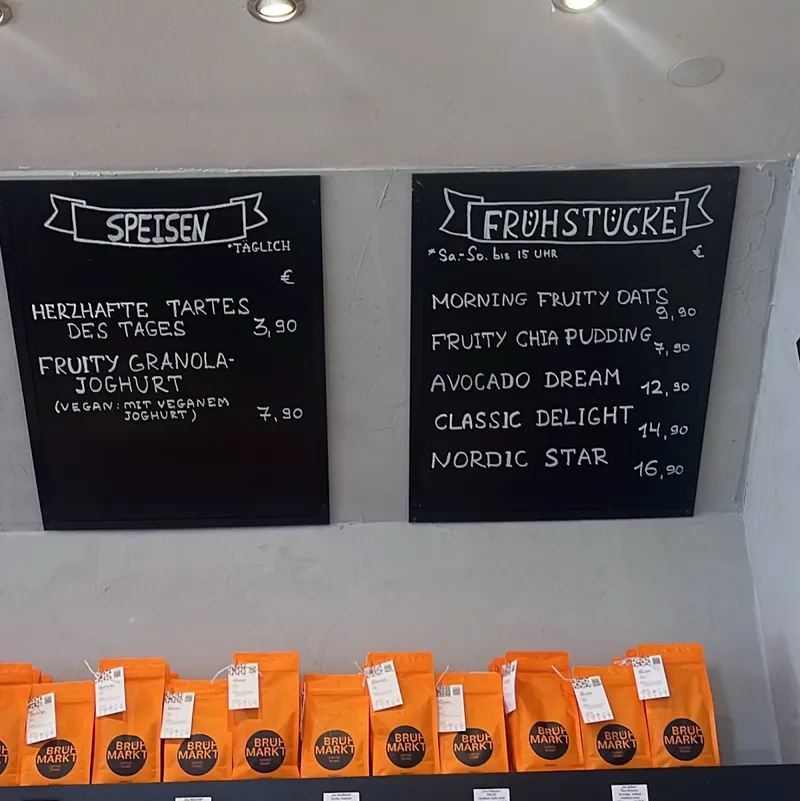 SPEISEN
*TÄGLICH
€
HERZHAFTE TARTES
DES TAGES 3,90
FRUITY GRANOLA-
JOGHURT
(VEGAN: MIT VEGANEM
JOGHURT) 7,90
FRÜHSTÜCKE
*Sa.-So. bis 15 UHR €
MORNING FRUITY OATS
9,90
FRUITY CHIA PUDDING
7,90
AVOCADO DREAM 12,90
CLASSIC DELIGHT 14,90
NORDIC STAR 16,90
BRÜH
MARKT
BRÜH
MARKT
BRÜH
MARKT
BRÜH
MARKT
BRÜH
MARKT
BRÜH
MARKT
BRÜH
MARKT
BRÜH
MARKT
BRÜH
MARKT
BRÜH
MARKT